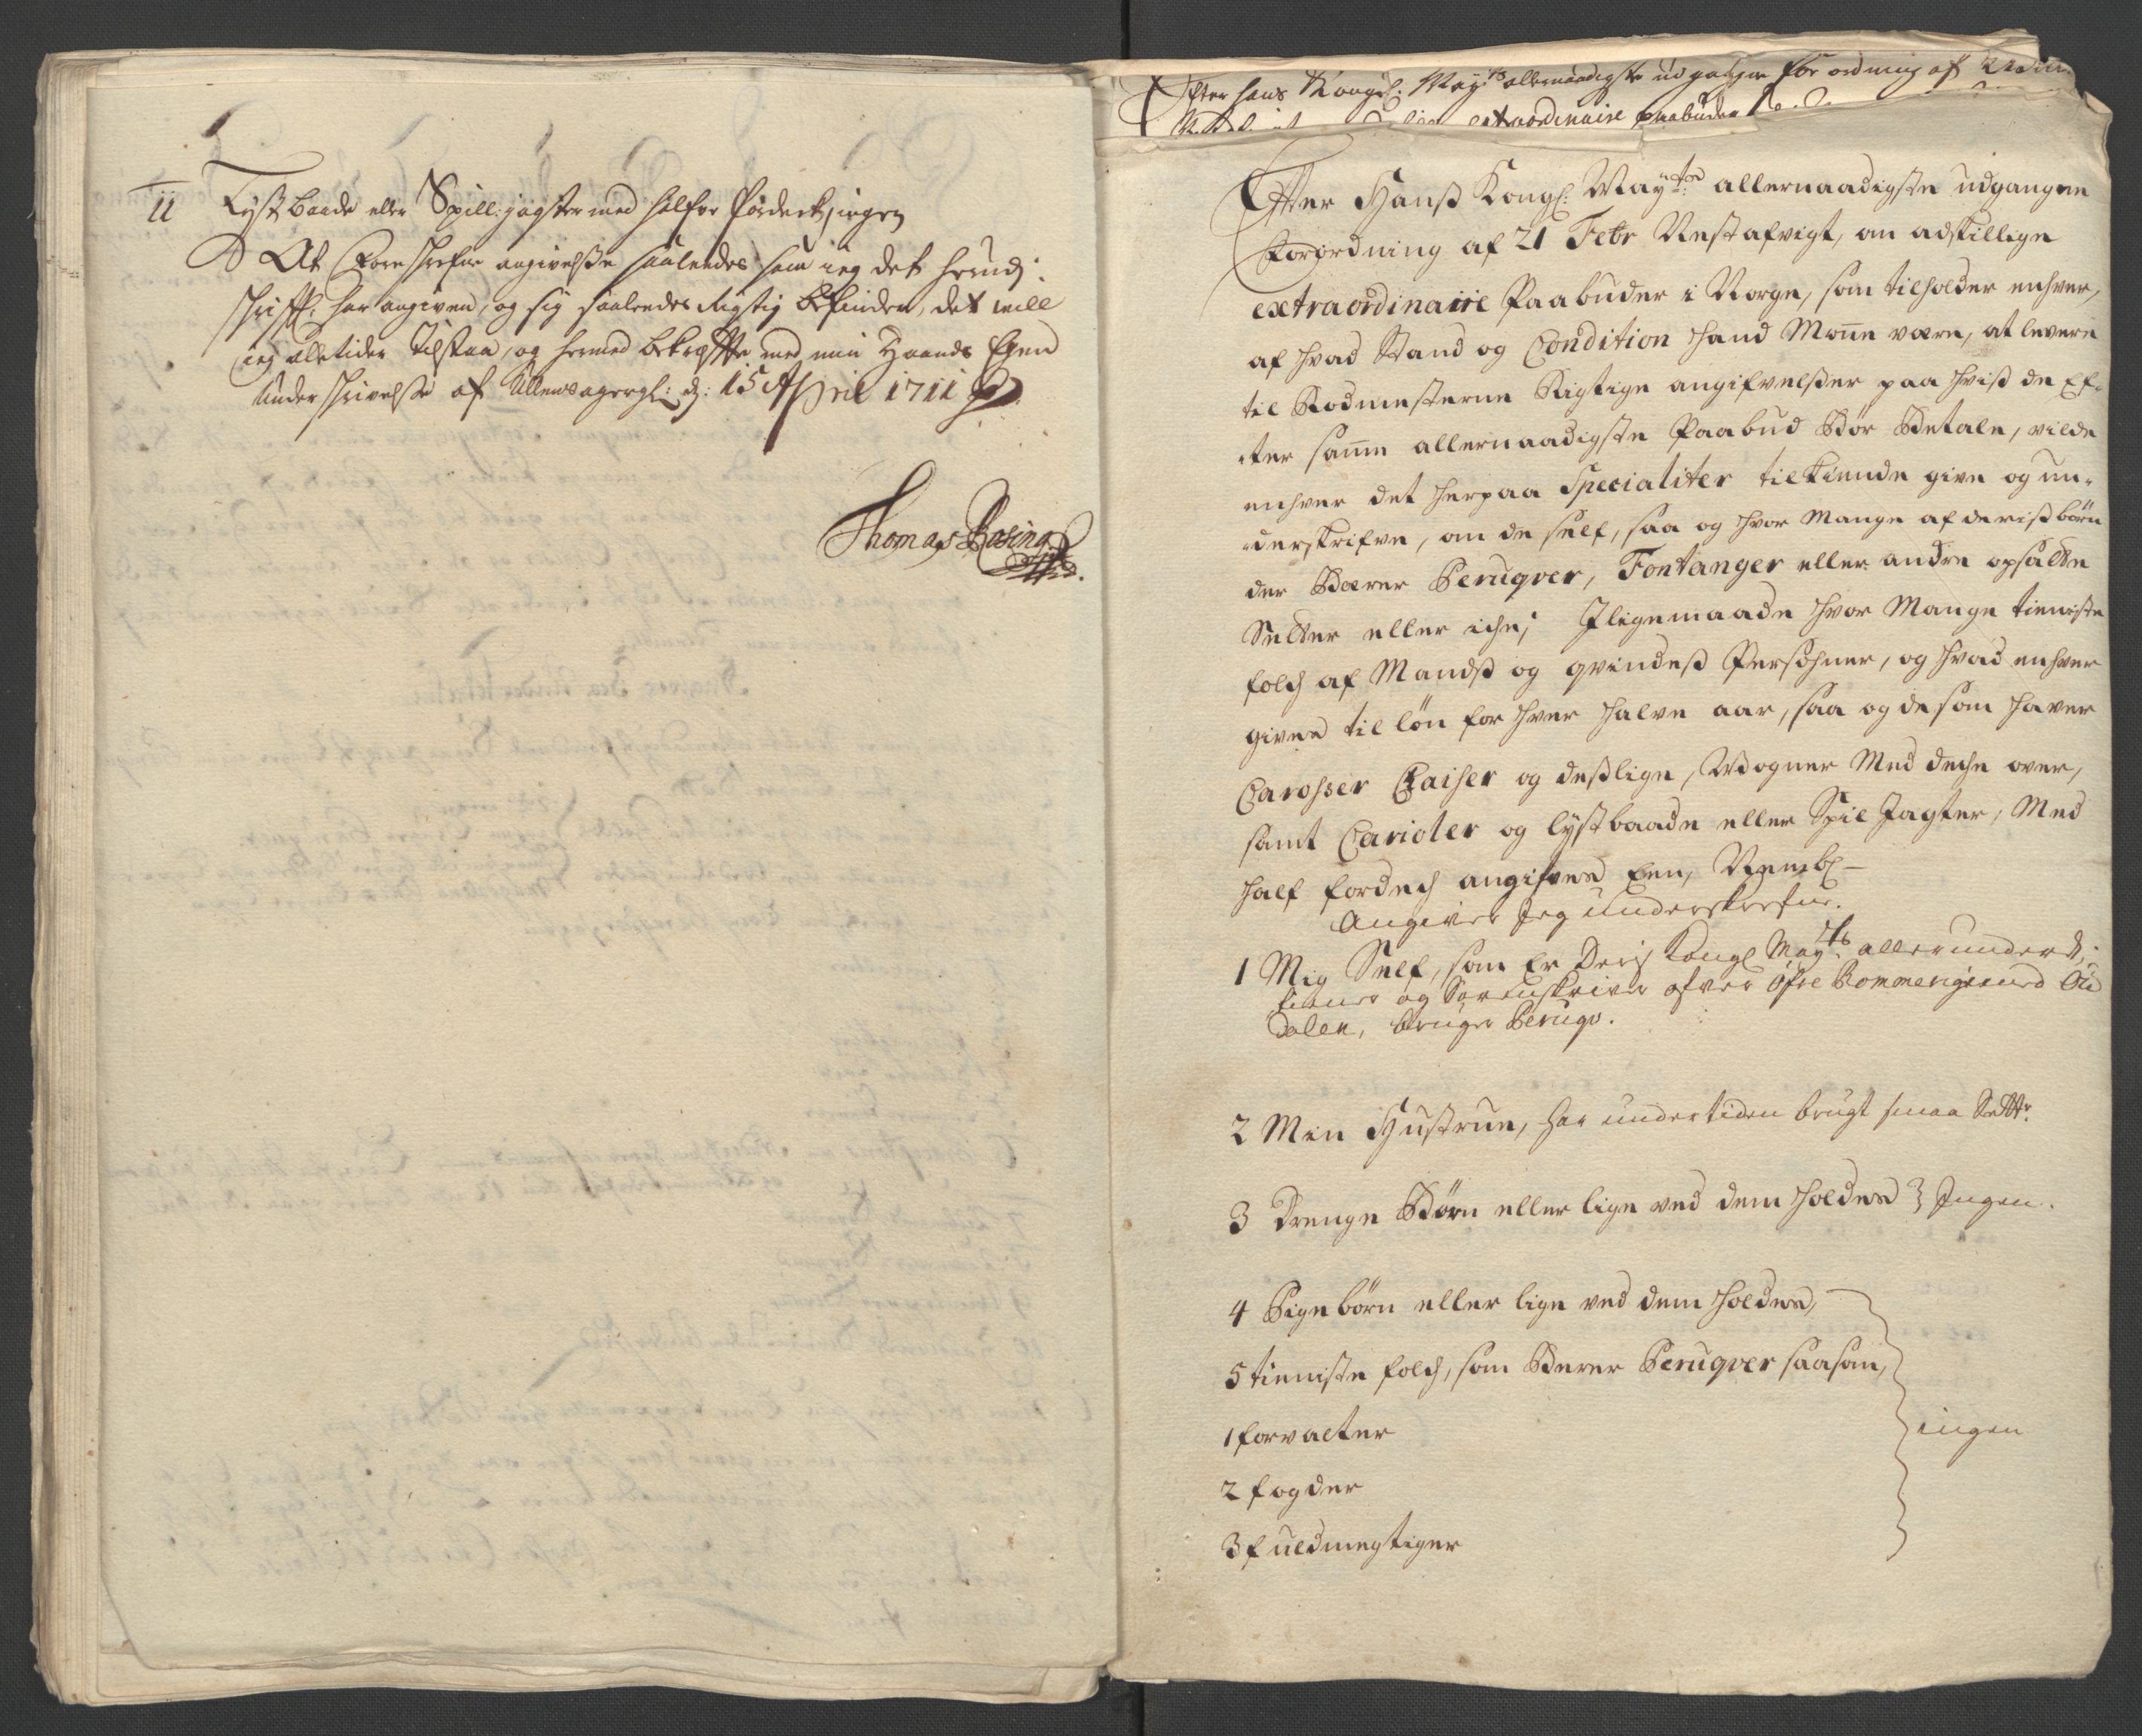 11 Lystbaade eller Spill:jagter med halfve Fordech, ingen
At Foreskrefne angivelsse saaledes som ieg det herudj
skrifftl: har angiven, og sig saaledes Rigtig befinder, det will
ieg alletider Tilstaa, og hermed bekræffte med min Haands Egen
Under skrivelsse af Ullensagergl: d: 15 April 1711
Thomas Rosing
Efter Hans Kongl: Mayts allernaadigste udgangne Forordning af
extraordinaire paabuden
Efter Hanß Kongl: Mayts allernaadigste udgangne
Forordning af 21 Febr Nestafvigt, om adskillige
extraordinaire Paabuder i Norge, som tilholder enhver,
af hvad Stand og Condition hand Mone være, at levere
til Rodmesterne Rigtige angifvelßer paa hviß de Ef-
ter samme allernaadigste Paabud Bør Betale, vilde
enhver det herpaa Specialiter tilkiende give og un-
derskrifve, om de self, saa og hvor Mange af deriß børn
der Bærer Peruqver, Fontanger eller andre opsatte
Setter eller iche; Iligemaade hvor Mange tieniste
folch af Mandß og qvindeß Persohner, og hvad enhver
gives til løn for hver halve aar, saa og de som haver
Carosser Chaiser og deßlige, Wogner Med deche over,
samt Carioler og lystbaade eller Spil Jagter, Med
half fordech angifves Een, Nembl-
Angiver Jeg underskrefne.
1 Mig Self, som Er Deris Kongl Mayts allerunderd:
tiener og Sorenskriver ofver Øfre Rommerige med
dalen, bruger Peruqv.
2 Min Hustrue, har undertiden brugt smaa Setter
3 Drenge Børn eller lige ved dem holdes } Ingen.
4 Pigebørn eller lige ved dem holdes,
5 tieniste folch, som Bærer Peruqver saasom,
1 forvalter
ingen
2 fogder
3 fuldmegtiger